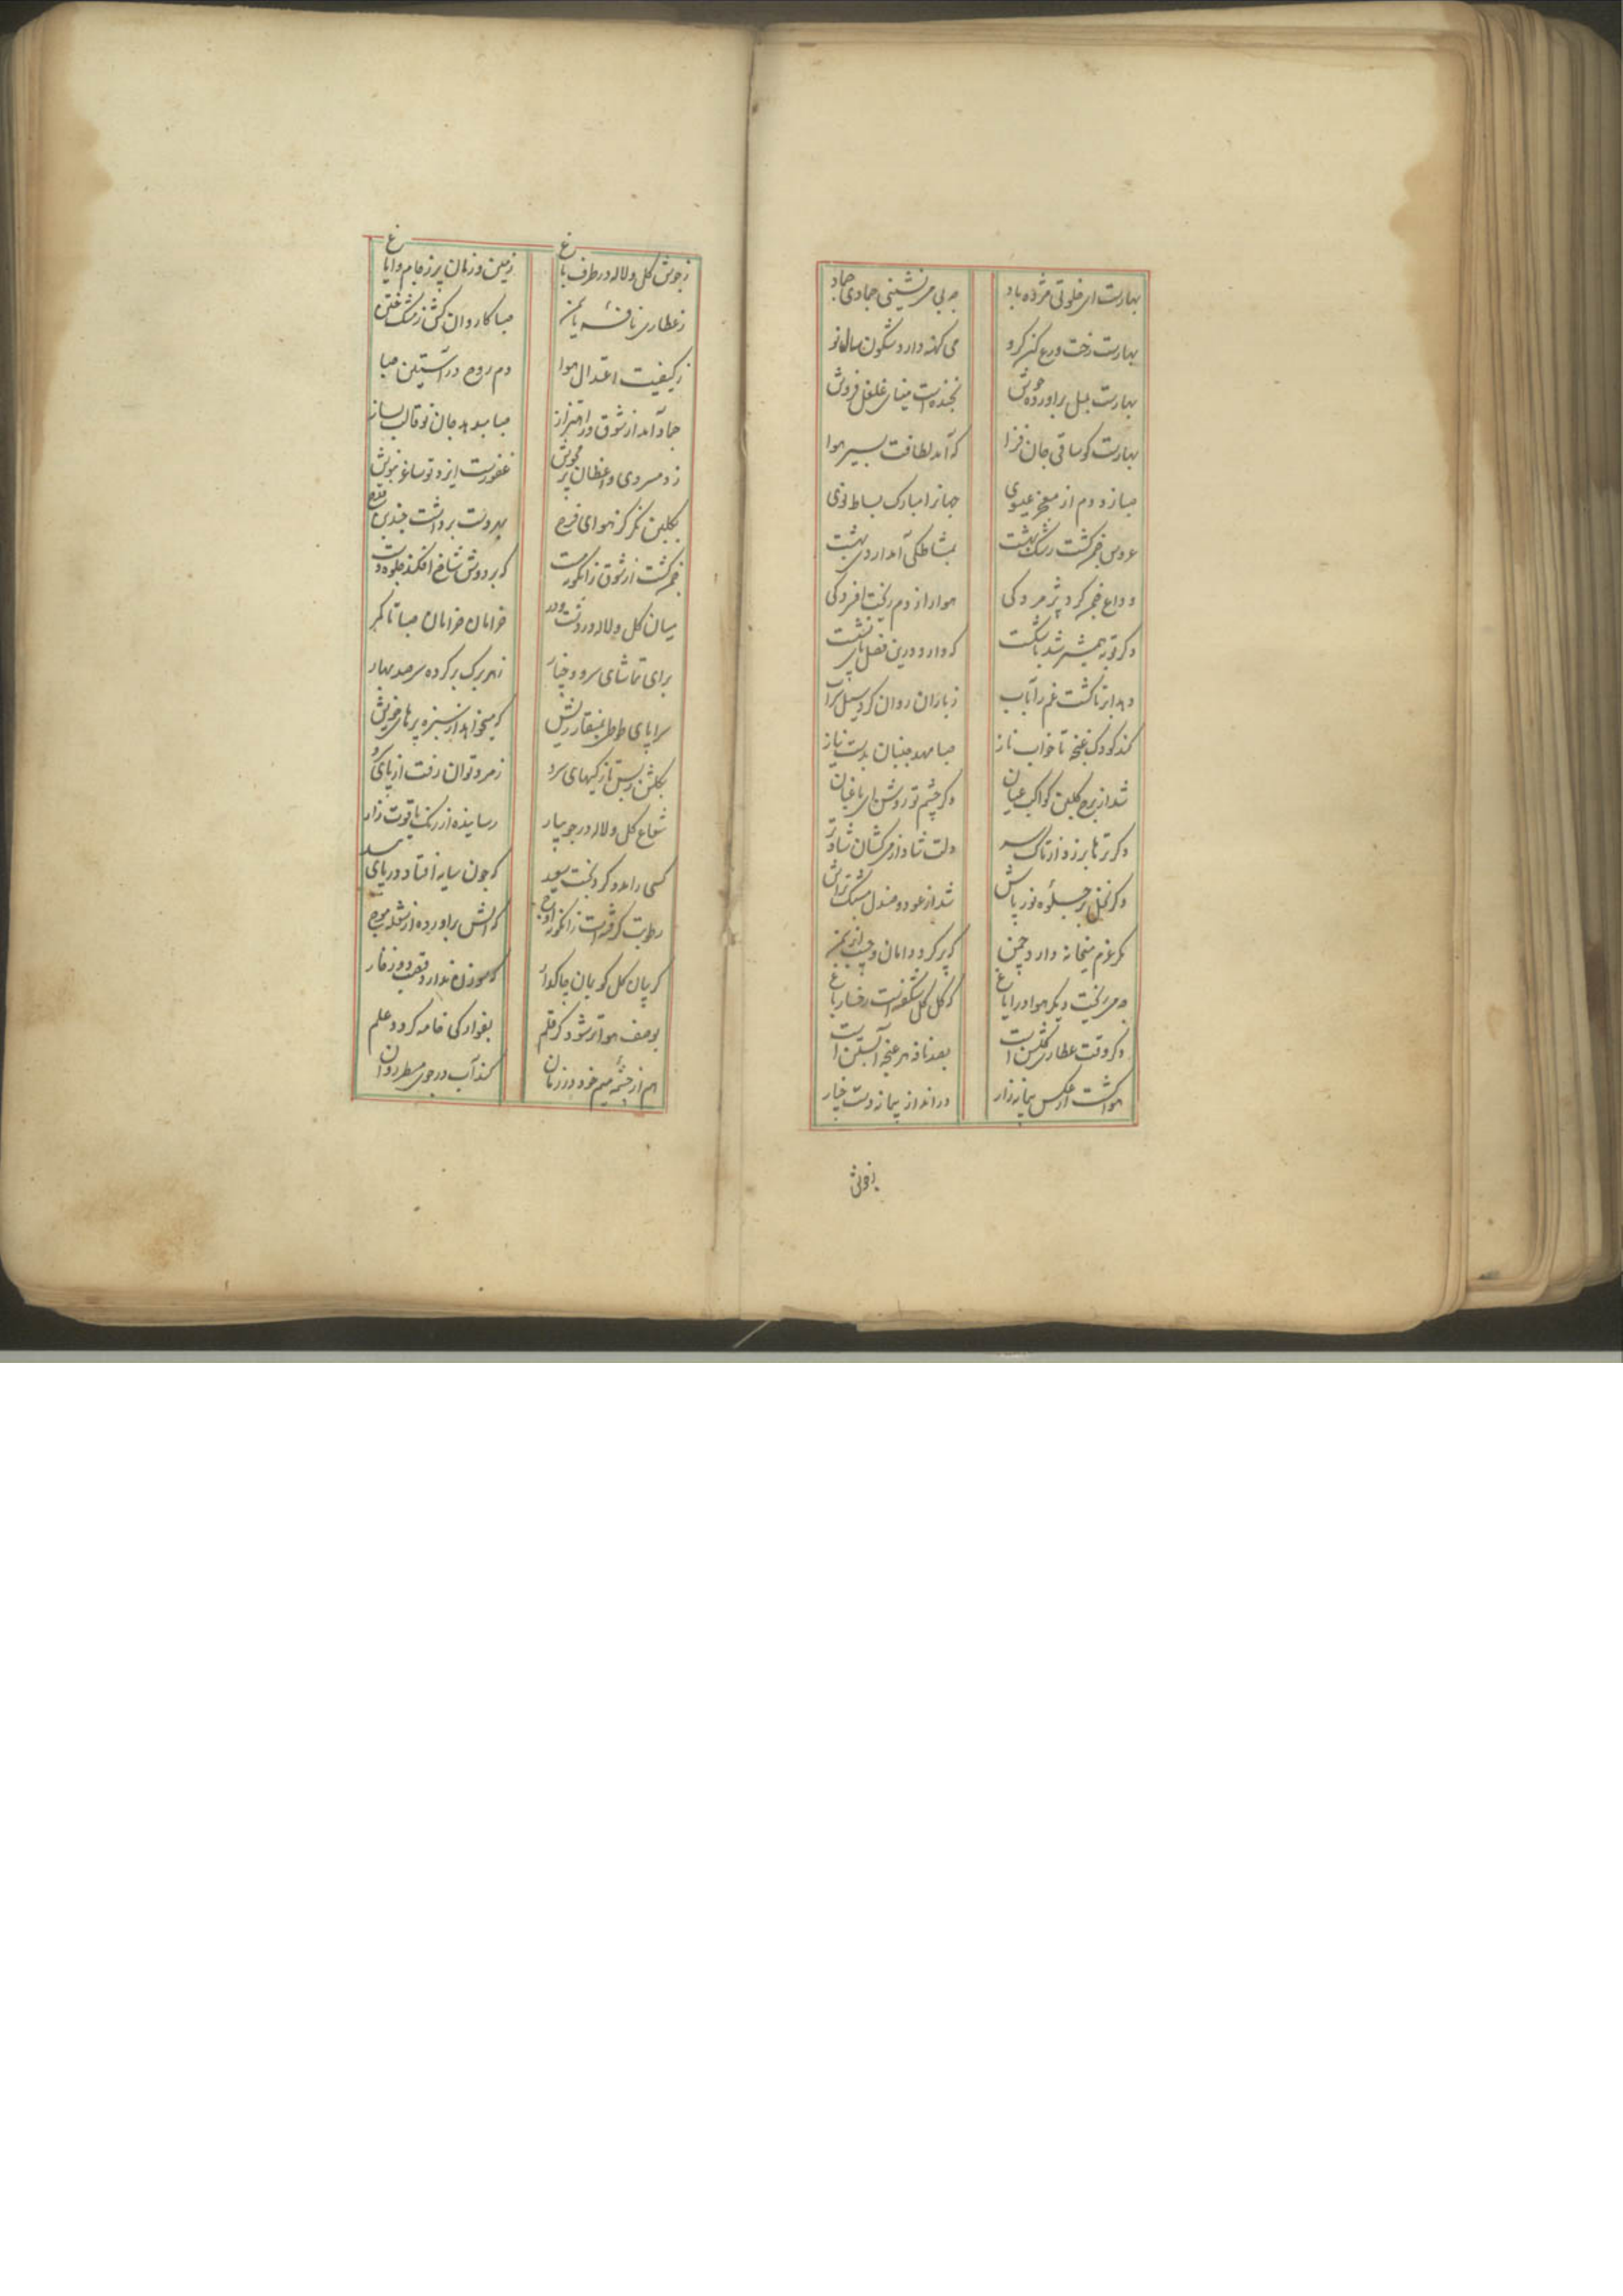 بهارست ای خلوتی مژده باد
چه بی می نشینی جمادی جماد
بهارست رخت ورع کن گرو
می کهنه دارد شگون سال نو
بهارست بلبل برآورده جوش
بخنده است مینای غلغل فروش
بهارست کو ساقی جان فزا
که آمد لطافت بسیر هوا
صبا زد دم از معجز عیسوی
جهانرا مبارک بساط نوی
عروس چمن گشت رشک بهشت
بمشاطگی آمد اردیبهشت
وداع چمن کرد پژمردگی
هوا را ز دم ریخت افسردگی
دگر توبه همشیر شد با شکست
که دارد درین فصل پای نشست
دهد ابر تا کشت غم را بآب
ز باران روان کرد سیل شراب
کند کودک غنچه تا خواب ناز
صبا مهد جنبان بدست نیاز
شد از برج گلبن کواکب عیان
دگر چشم تو روشن ای باغبان
دگر ترها برزد از تاک سر
دلت شاد از می کشان شادتر
دگر نخل بر جلوه نور پاش
شد از عود و صندل مشک تراش
مگر عزم میخانه دارد چمن
که پر کرد دامان و جیب از سمن
چه می ریخت دیگر هوا در ایاغ
که گل گل شگفته است رخسار باغ
دگر وقت عطاری گلشن است
بصد نافه هر غنچه آبستن است
هوا گشت از عکس پیمانه زار
در انداز پیمانه دست چنار
ز جوش
ز جوش گل و لاله در طرف باغ
زمین و زمان پر ز جام و ایاغ
ز عطاری نافهٔ یاسمن
صبا کاروان کش ز مشک ختن
ز کیفیت اعتدال هوا
دم روح در آستین صبا
جماد آمد از شوق در اهتزاز
صبا میدمد جان تو قالب بساز
ز دمسردی واعظان پر مجوش
غفورست ایزد تو ساغر بنوش
بگلبن نگر کز هوای قدح
بهر دست برداشت چندین قدح
چمن گشت از شوق زانگونه مست
که بر دوش شاخ افکند جلوه دست
میان گل و لاله در دشت و در
خرامان خرامان صبا تا کمر
برای تماشای سرو و چنار
ز هر برگ بر کرده سر صد بهار
سراپای طوطی بمنقار ریش
که میخواهد از سبزه پرهای خویش
بگلشن ز بس تازگیهای سرو
زمرد توان رفت از پای سرو
شعاع گل و لاله در جویبار
رسانیده از رنگ یاقوت زار
کسی را مدد کرد بخت سعید
که چون سایه افتاد در پای بید
رطوبت گرفته است زانگونه اوج
که آتش برآورده از شعله موج
گریبان گل گو بمان چاکدار
که سوزن ندارد بجیب دوز خار
بوصف هوا تر شود گر قلم
بفوارگی خامه گردد علم
هم از چشمهٔ میم خود در زمان
کند آب در جوی مسطر روان